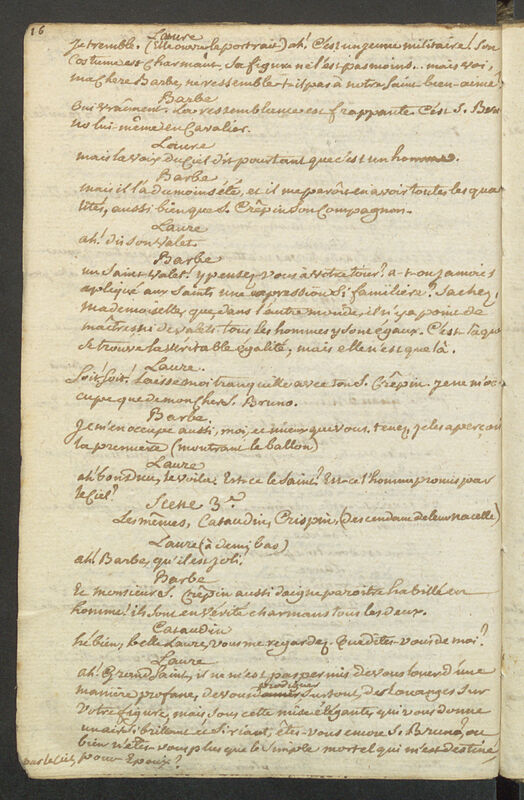 16
Laure
Je tremble. (Elle ouvre le portrait) ah! C'est un jeune militaire! Son
Costume est Charmant. Sa figure ne l'est pas moins... mais voi,
ma Chere Barbe, ne ressemble-t-il pas a notre Saint bien-aimé?
Barbe
Oui vraiment. La ressemblance est frappante. C'est S. Bru
no lui-même en Cavalier.
Laure
mais la voix du Ciel dit pourtant que c'est un homme.
Barbe
mais il l'a du moins été, et il me paroît en avoir toutes les qua
lités, aussi bien que S. Crêpin Son Compagnon.
Laure
ah! dis Son Valet.
Barbe
un Saint Valet! y pensez-vous à votre tour? a-t-on jamais
apliqué aux Saints une expression Si familière? Sachez,
mademoiselle, que dans l'autre monde, il n'y a point de
maîtres ni de valets. tous les hommes y Sont égaux. C'est la que
Se trouve la véritable égalité, mais elle n'est que là.
Laure.
Soit! Soit! Laisse moi tranquille avec ton S. Crêpin. je ne m'oc
cupe que de mon Cher S. Bruno.
Barbe
Je m'en occupe aussi, moi, et mieux que vous. tenez, je les aperçoi
la première (montrant le ballon)
Laure
ah! bon dieu, le voila. Est-ce le Saint? Est-ce l'homme promis par
le Ciel?
Scene 3.e
Les mêmes, Casaudin, Crispin, (descendans de leur nacelle)
Laure (à demi bas)
ah! Barbe, qu'il est joli!
Barbe
Et monsieur S. Crêpin aussi daigne paroître habillé en
homme! ils Sont en vérité charmans tous les deux.
Casaudin
hé bien, belle Laure, vous me regardez. Que dites-vous de moi?
Laure
ah! Grand Saint, il ne m'est pas permis de vous louer d'une
manière profane, de vous prodiguer Surtout, des louanges Sur
votre figure, mais Sous cette mise élégante, qui vous donne
un air Si brillant et Si riant, êtes-vous encore S. Bruno, ou
bien n'êtes-vous plus que le Simple mortel qui m'est destiné
par le Ciel, pour Epoux?